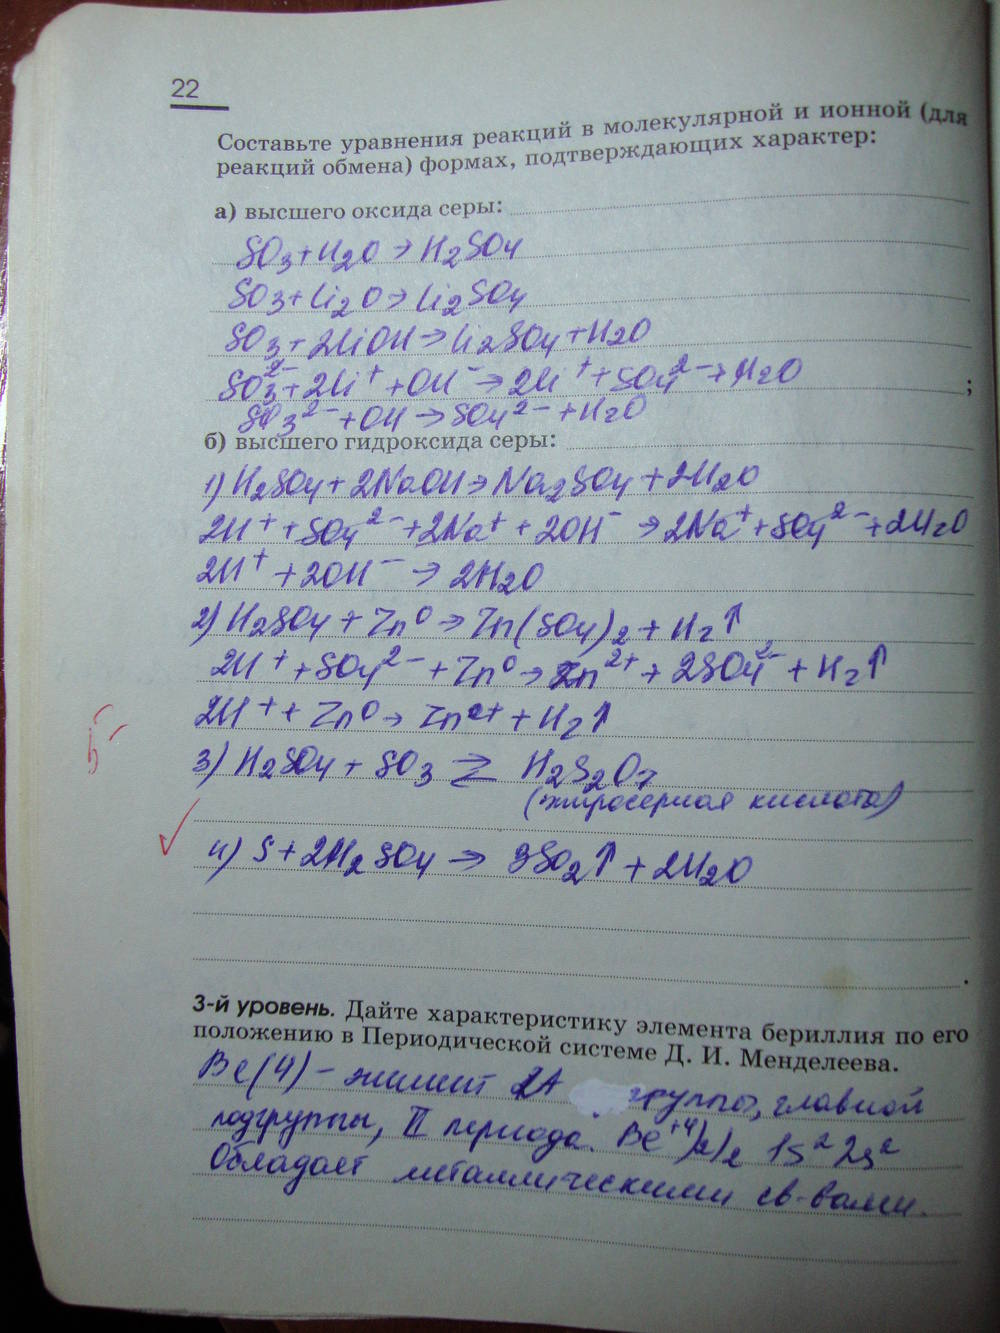 22
Составьте уравнения реакций в молекулярной и ионной (для
реакций обмена) формах, подтверждающих характер:
а) высшего оксида серы:
SO₃+H₂O → H₂SO₄
SO₃+Li₂O → Li₂SO₄
SO₃+2LiOH → Li₂SO₄+H₂O
SO₃²⁻+2Li⁺+OH⁻ → 2Li⁺+SO₄²⁻+H₂O ;
SO₃²⁻+OH → SO₄²⁻+H₂O
б) высшего гидроксида серы:
1) H₂SO₄+2NaOH → Na₂SO₄+2H₂O
2H⁺+SO₄²⁻+2Na⁺+2OH⁻ → 2Na⁺+SO₄²⁻+2H₂O
2H⁺+2OH⁻ → 2H₂O
2) H₂SO₄+Zn⁰ → Zn(SO₄)₂+H₂↑
2H⁺+SO₄²⁻+Zn⁰ → Zn²⁺+2SO₄²⁻+H₂↑
2H⁺+Zn⁰ → Zn²⁺+H₂↑
5⁻
3) H₂SO₄+SO₃ ⇄ H₂S₂O₇
(пиросерная кислота)
4) S+2H₂SO₄ → 3SO₂↑+2H₂O
.
3-й уровень. Дайте характеристику элемента бериллия по его
положению в Периодической системе Д. И. Менделеева.
Be(4) – элемент 2А группы, главной
подгруппы, II периода. Be⁺⁴)₂)₂ 1s²2s²
Обладает металлическими св-вами.